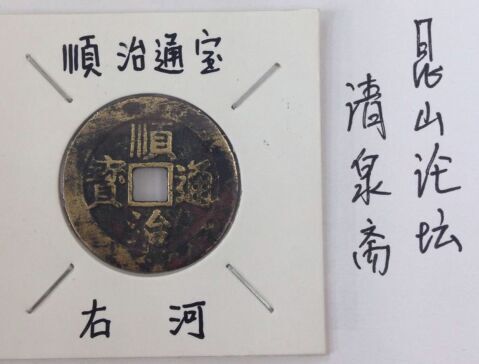 順治通宝
順治通寳
右河
昆山论坛
清泉斋